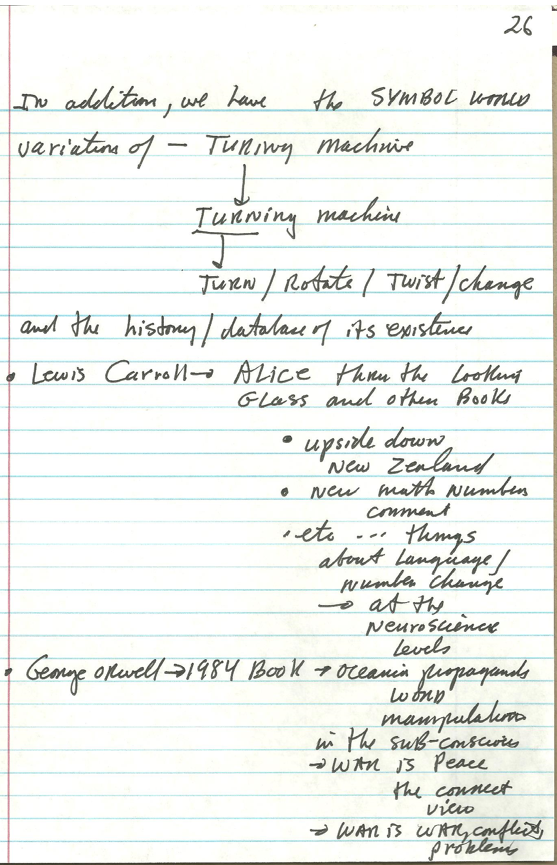 26
In addition, we have the SYMBOL WORLD
variation of – TURING machine
↓
TURNing machine
↓
TURN / Rotate / Twist / change
and the history / database of its existence
• Lewis Carroll → ALICE thru the Looking
GLASS and other Books
• upside down
New Zealand
• new math number
comment
• etc ... things
about Language /
Number change
→ at the
Neuroscience
levels
• George Orwell → 1984 Book → Oceania propaganda
WORD
manipulation
in the sub-conscious
→ WAR is Peace
the connect
view
→ WAR is WAR, conflict,
problems